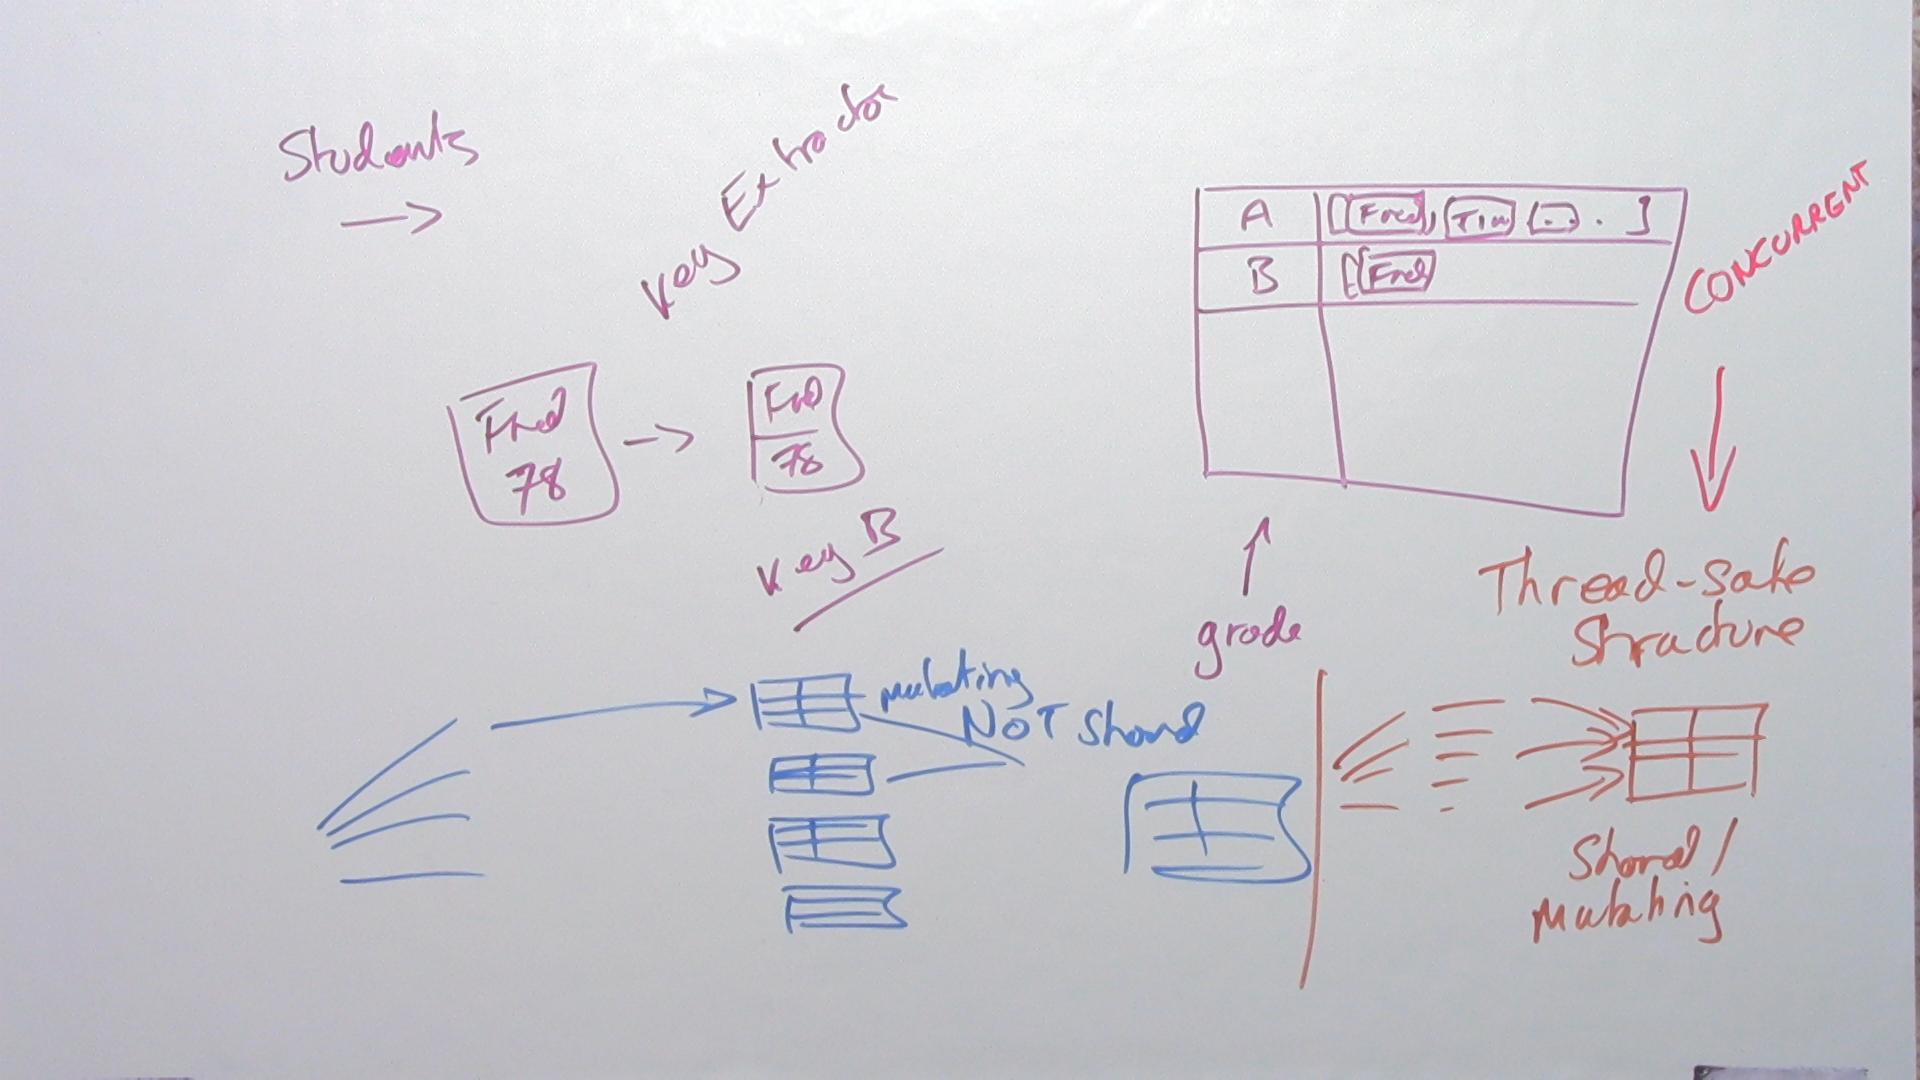 Students
Key Extractor
Fred
78
Fred
78
Key B
A [Fred, Tim ... ]
B [Fred
grade
CONCURRENT
Thread-safe
Structure
mutating
NOT Shared
Shared /
Mutating